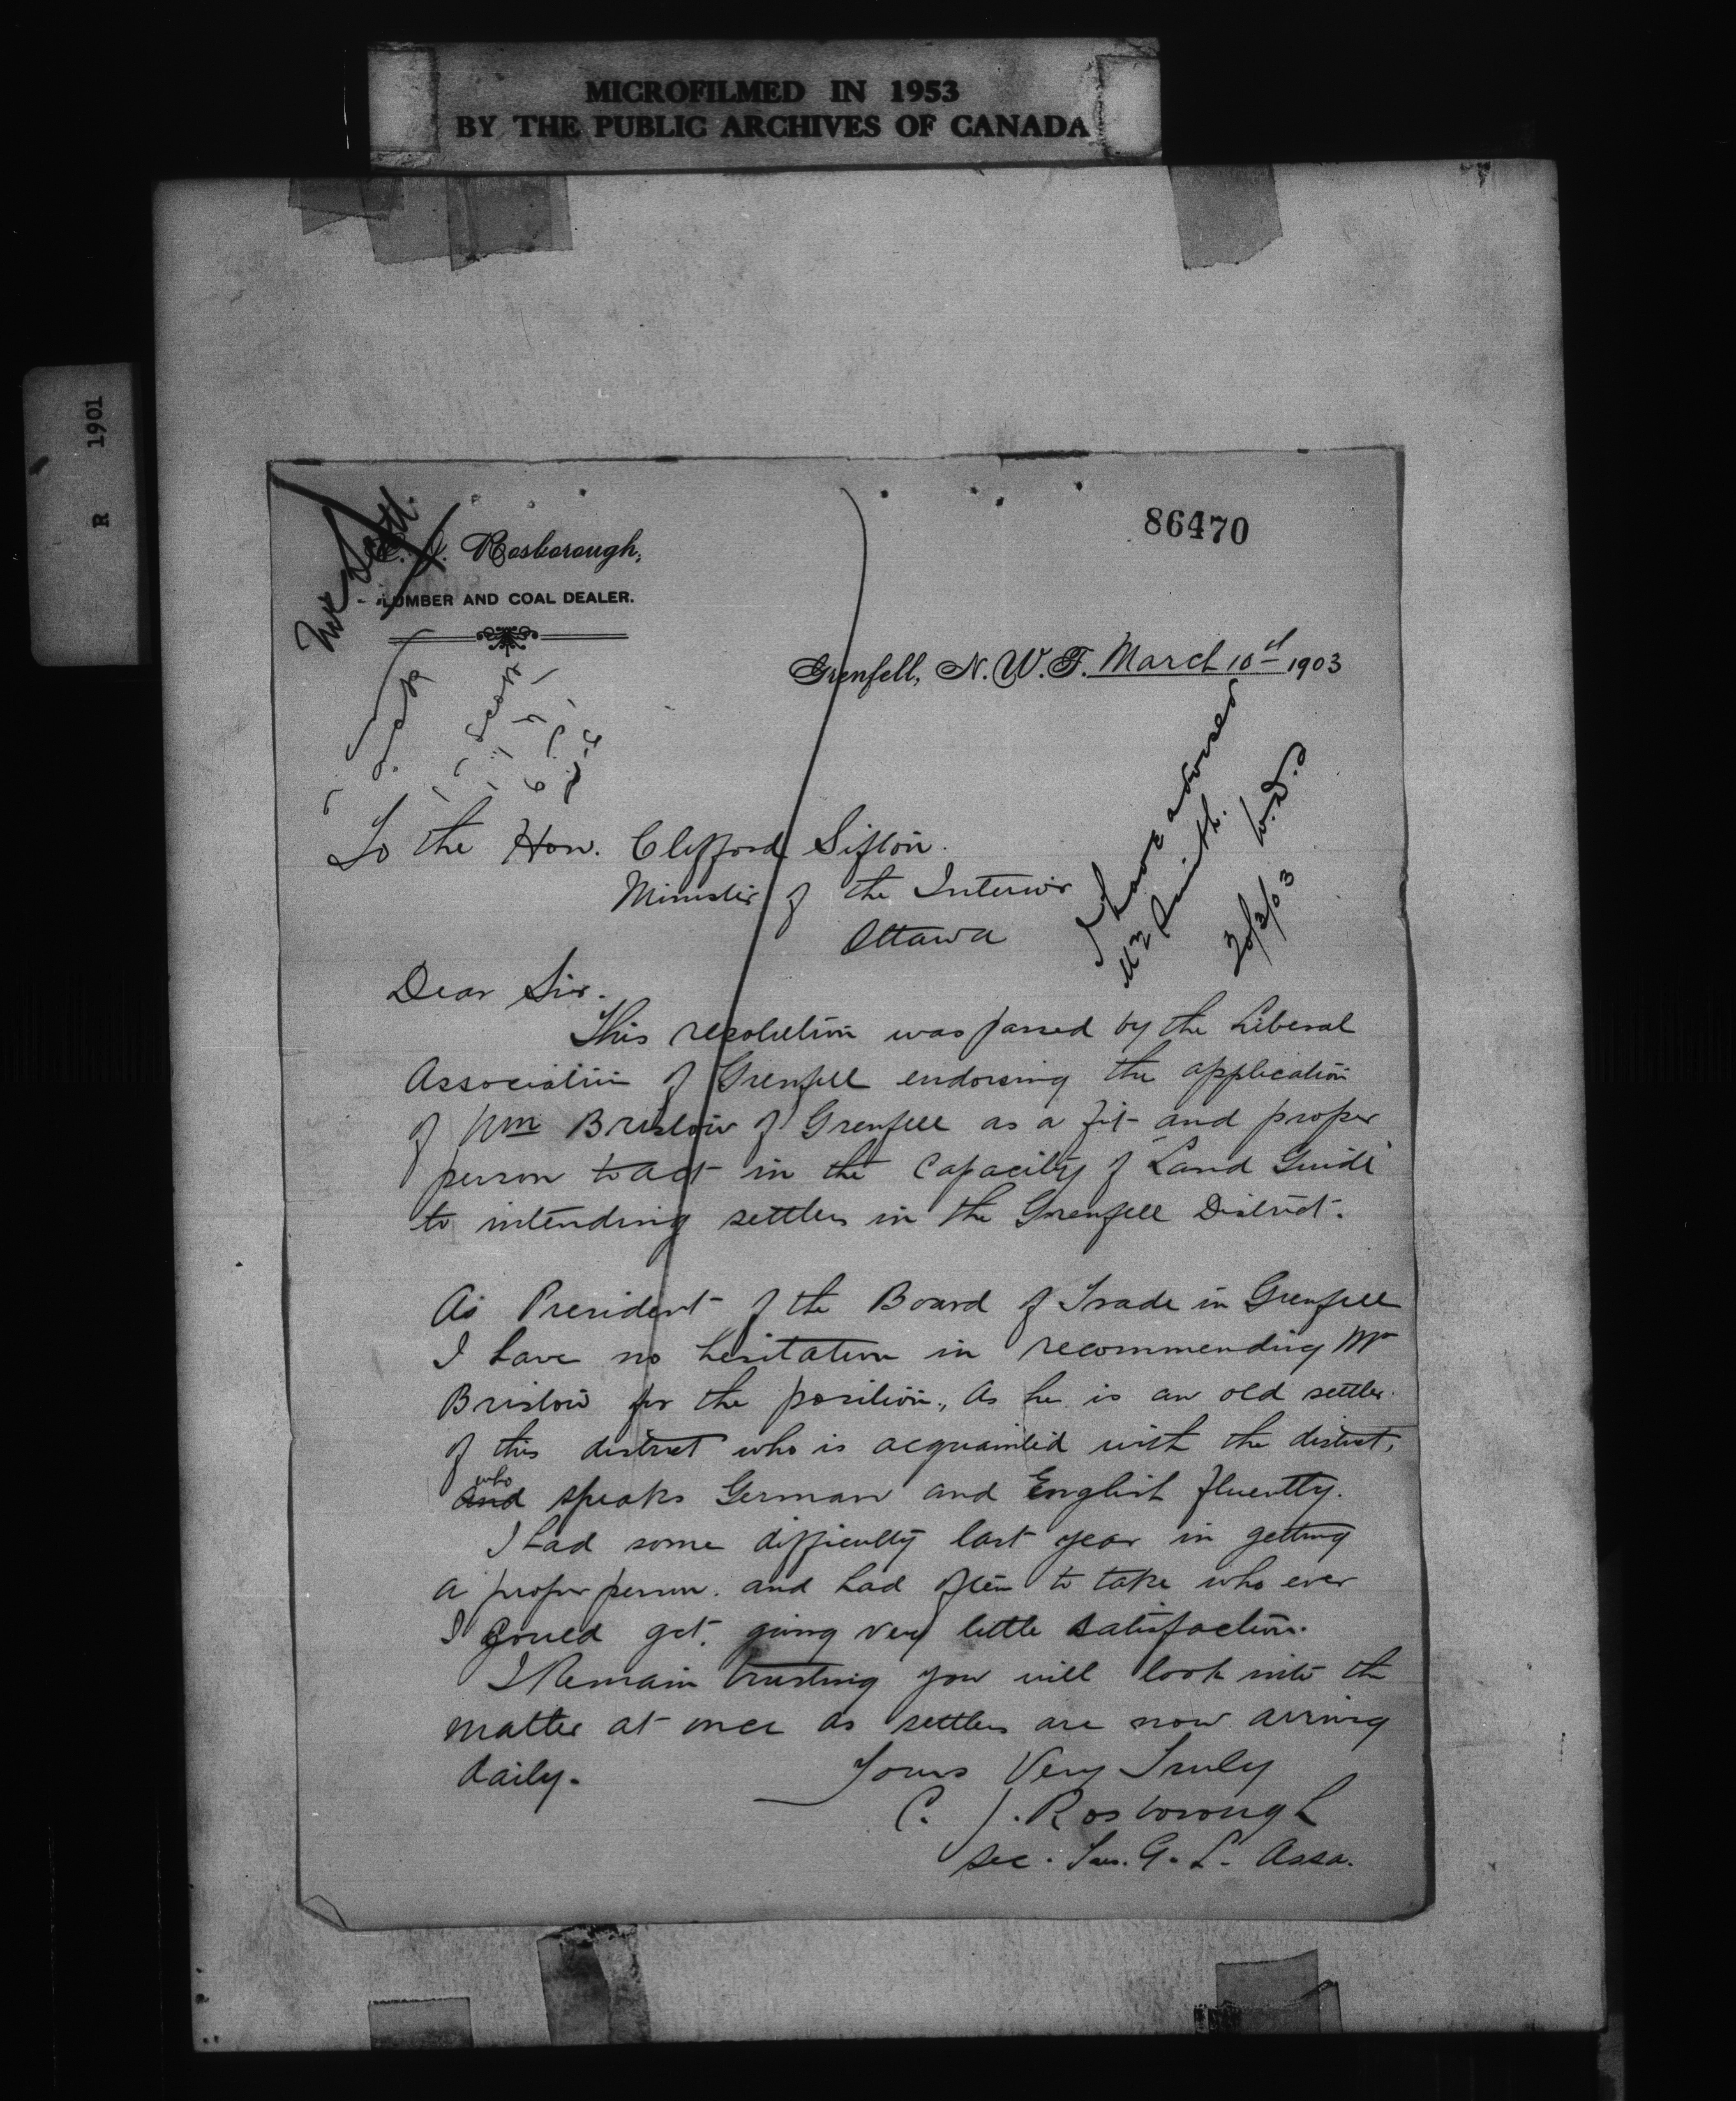 MICROFILMED IN 1953
BY THE PUBLIC ARCHIVES OF CANADA
R 1901
86470
Mr Scott.
C. J. Rosborough,
LUMBER AND COAL DEALER.
Grenfell, N. W. T. March 10th 1903
I have advised
Mr Smith.
W.D.S
20/3/03
To the Hon. Clifford Sifton.
Minister of the Interior
Ottawa
Dear Sir.
This resolution was passed by the Liberal
Association of Grenfell endorsing the application
of Wm Bristow of Grenfell as a fit and proper
person to act in the Capacity of "Land Guide"
to intending settlers in the Grenfell District.
As President of the Board of Trade in Grenfell
I have no hesitation in recommending Mr
Bristow for the position, as he is an old settler
of this district who is acquainted with the district,
and who speaks German and English fluently.
I had some difficulty last year in getting
a proper person. and had often to take who ever
I could get, giving very little satisfaction.
I Remain trusting you will look into the
matter at once as settlers are now arriving
daily.
Yours Very Truly
C. J. Rosborough
Sec. Treas. G. L. Assa.